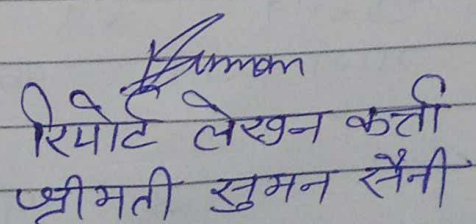 Suman
रिपोर्ट लेखन कर्ता
श्रीमती सुमन सैनी